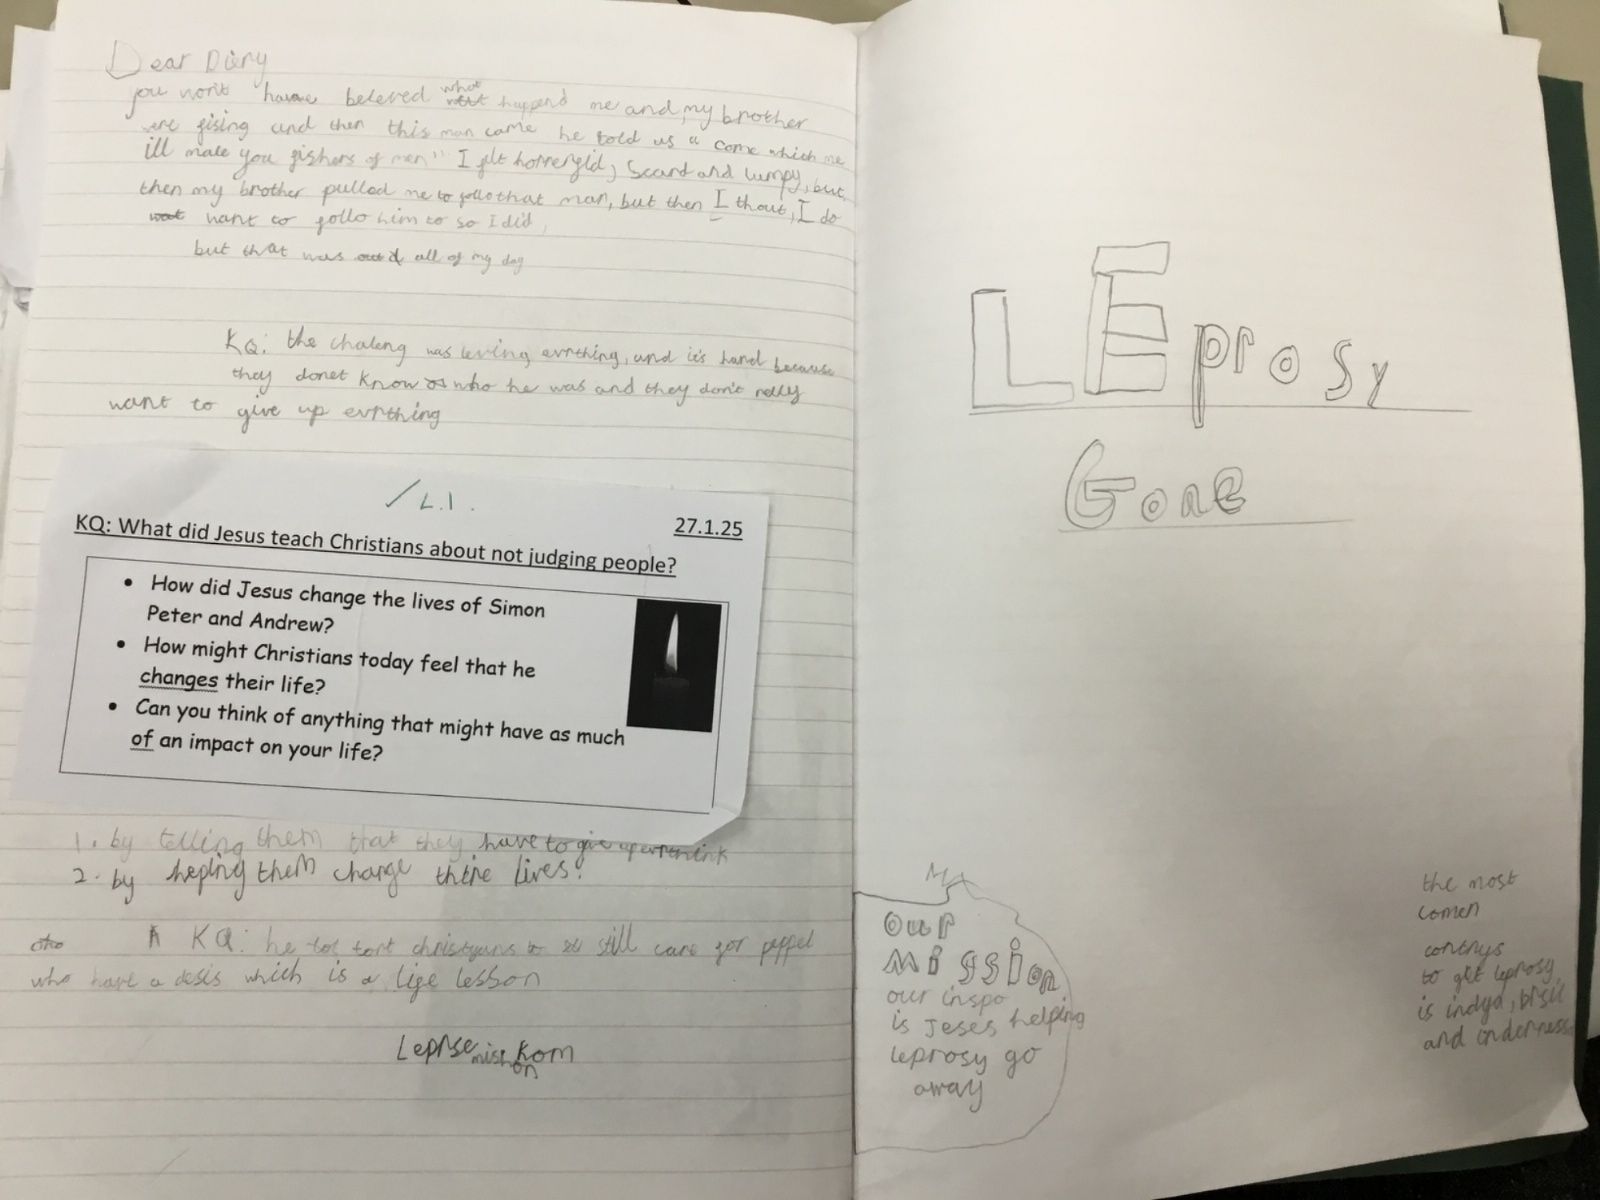 Dear Diery
you won't have beleved what happend me and my brother
were fising and then this man came he told us " come which me
ill make you fishers of men" I felt horreyfid, scard and lumpy, but
then my brother pulled me to follo that man, but then I thout, I do
want to follo him to so I did,
but that was all of my day
KQ: the chaleng was leving evrthing, and it's hard because
they donet know who he was and they don't relly
want to give up evrthing
/ L.I.
KQ: What did Jesus teach Christians about not judging people?
27.1.25
• How did Jesus change the lives of Simon
Peter and Andrew?
• How might Christians today feel that he
changes their life?
• Can you think of anything that might have as much
of an impact on your life?
1. by telling them that they have to give up
2. by helping them change thire lives.
KQ: he tort christyuns to still care for peppel
who have a desis which is a life lesson
Leprse mission
LEprosy
Gone
our
mission
our inspo
is Jeses helping
leprosy go
away
the most
comen
contrys
to get leprosy
is indya, brsil
and inderness